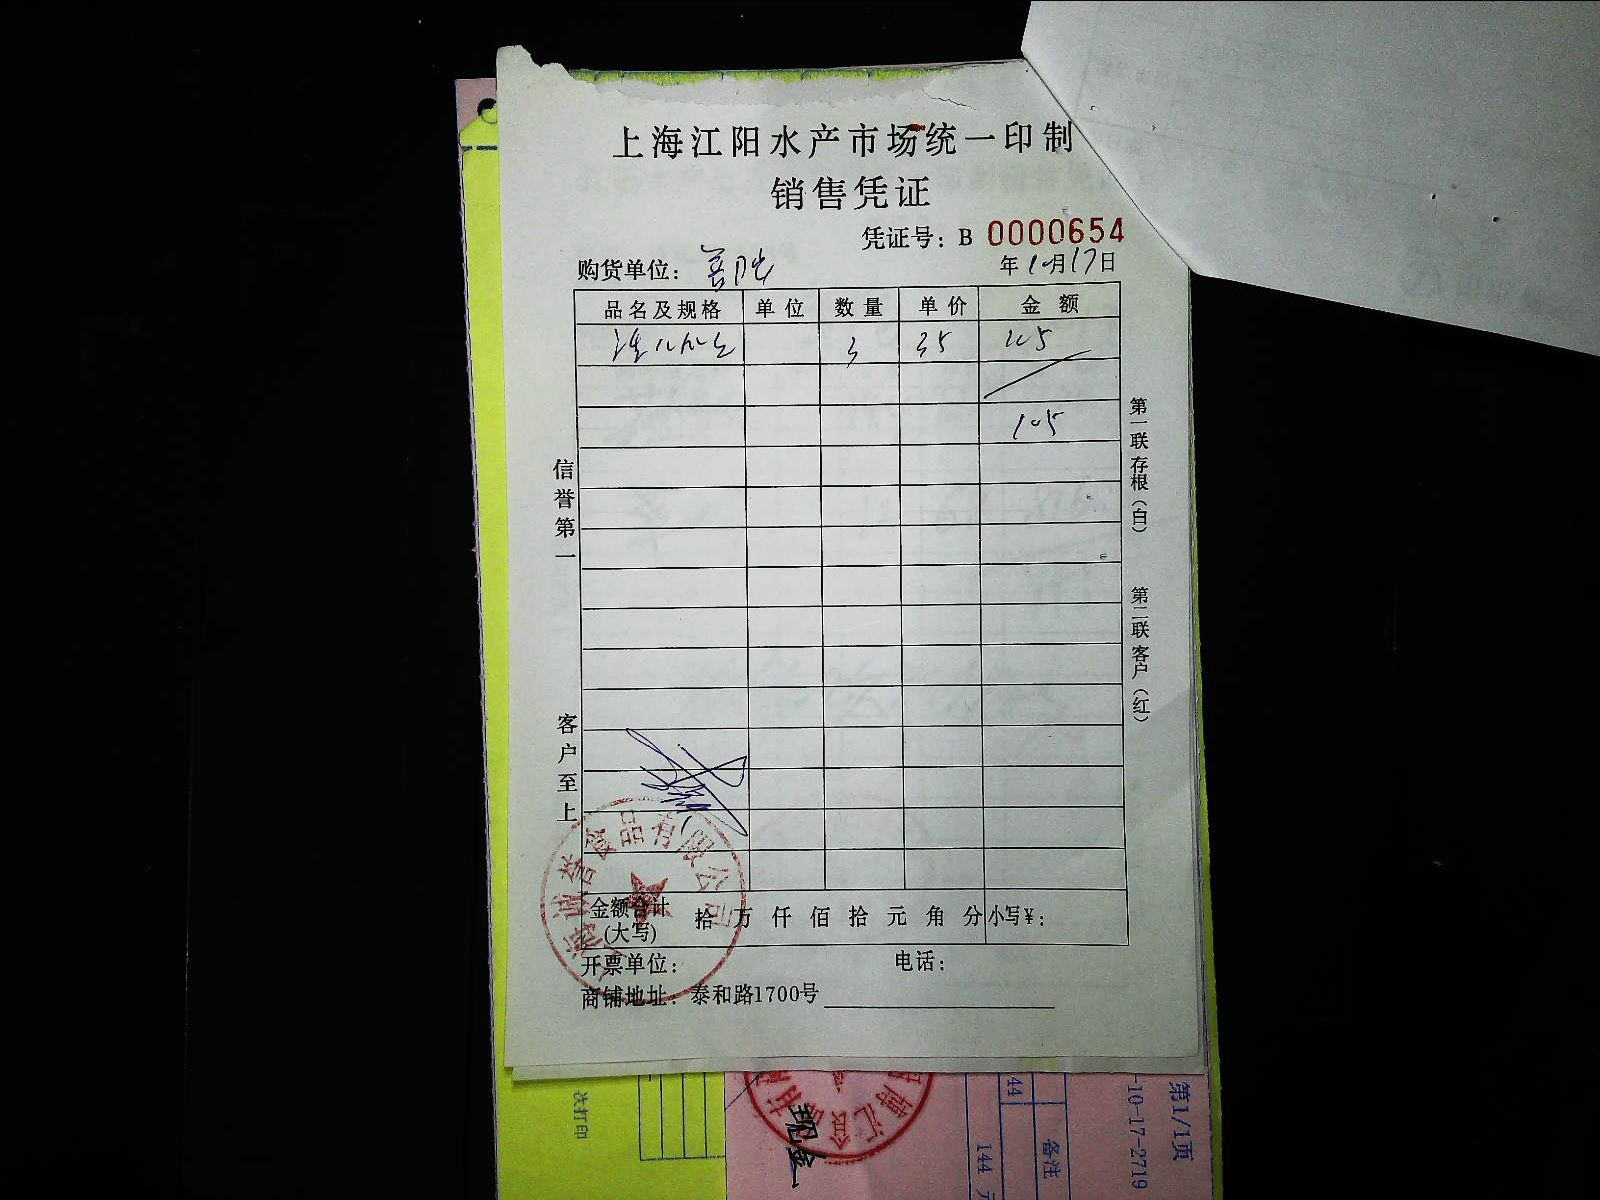 上海江阳水产市场统一印制
销售凭证
凭证号：B 0000654
购货单位：
年10月17日
品名及规格 单位 数量 单价 金额
3 35 105
105
信誉第一
客户至上
第一联存根（白）
第二联客户（红）
食品有限公司
金额合计(大写) 拾万仟佰拾元角分 小写¥：
开票单位： 电话：
商铺地址：泰和路1700号
次打印
现金
44
144 元
备注
-10-17-2719
第1/1页